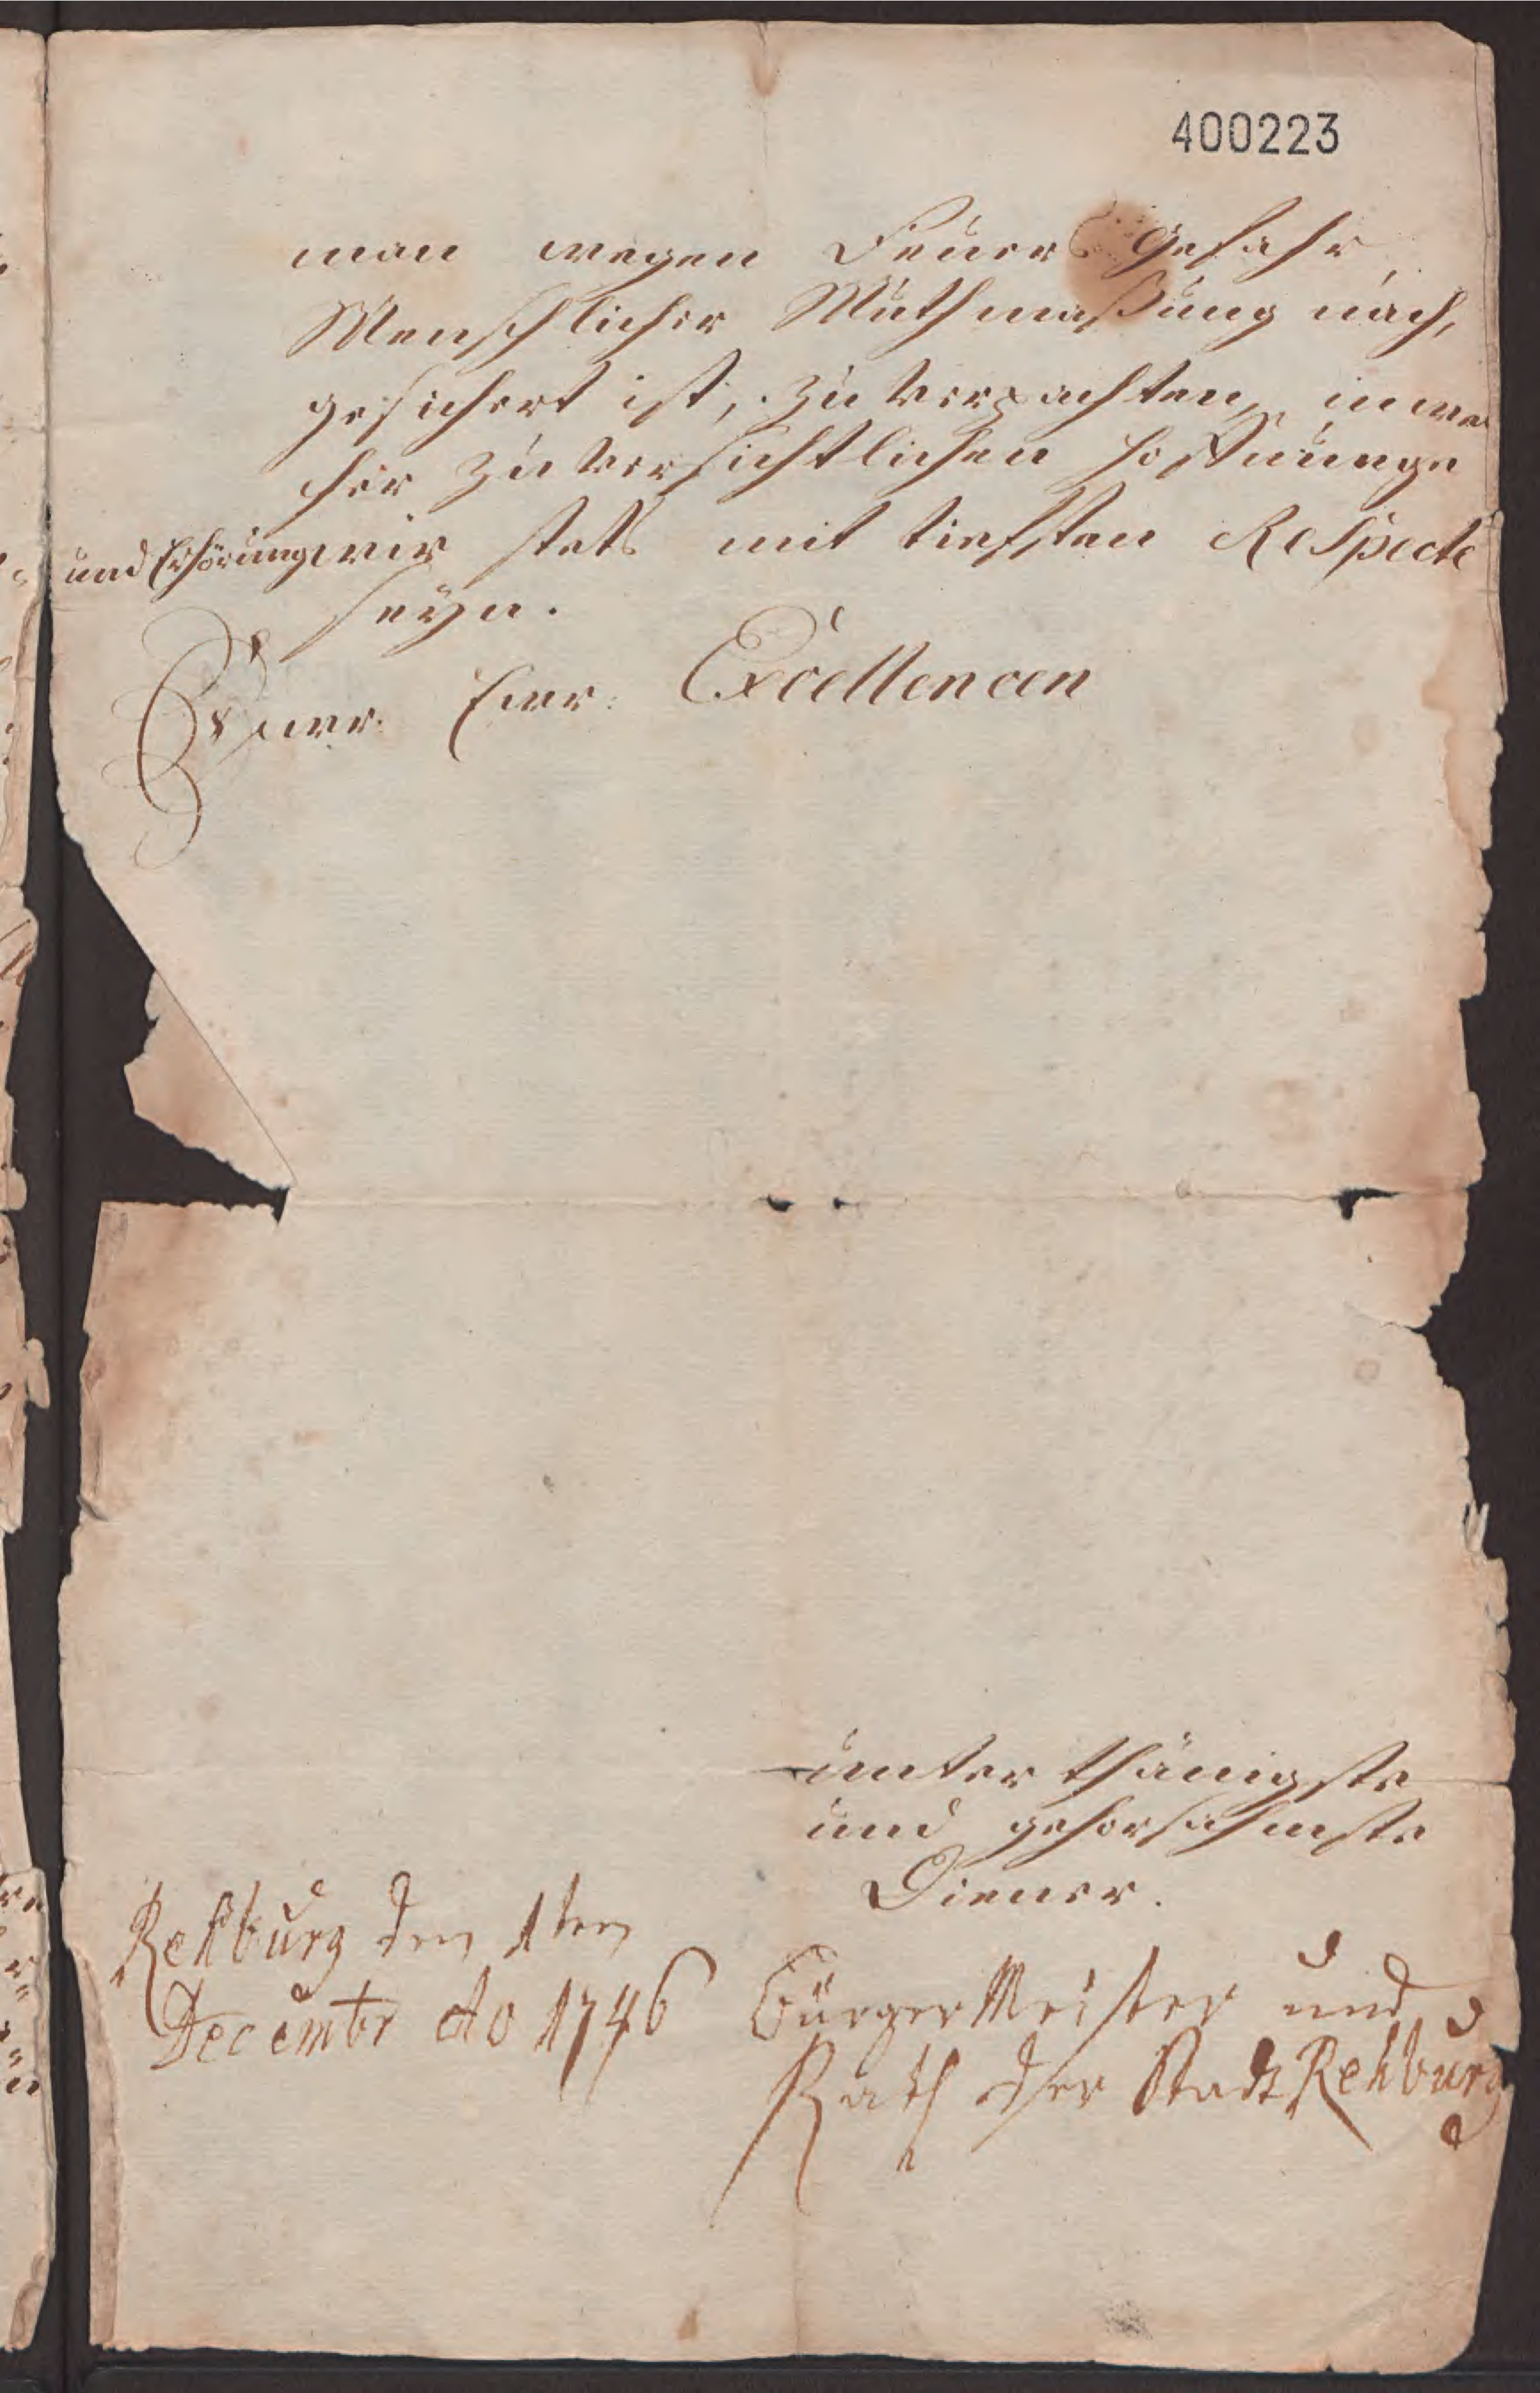 400223
man wegen Feuers Gefahr,
Menschlicher Muthmaßung nach,
gesichert ist, zu verpachten, in wel
cher zuversichtlichen Hoffnunge
und Erhörung wir stets mit tiefsten Respecte
seyn.
Euer. Eur. Excellencen
unterthänigste
und gehorsahmste
Diener.
Rehburg den 1ten
Decembr Ao 1746
Bürger Meister und
Rath der Stadt Rehburg